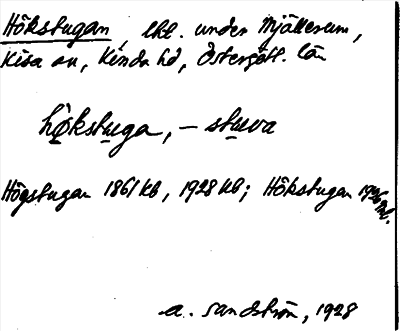 Hökstugan, lht. under Mjällerum,
Kisa sn, Kinda hd, Östergötl. län
hökstuga, – stuva
Högstugan 1861 kb, 1928 kb; Hökstugan
A. Sandström, 1928